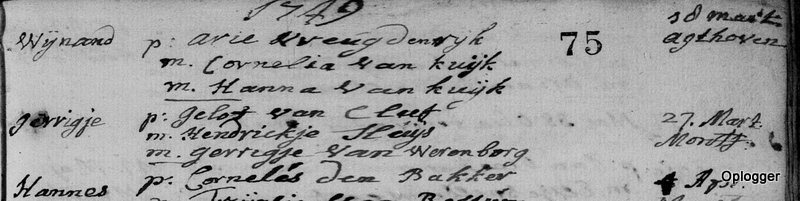 1749
18 mart
Wijnand p: Arie Vreugdenrijk 75 agthoven
m. Cornelia Van kuijk
m. Hanna Van kuijk
gerrigje p: gelof van Cluf 27. Mart
m. Hendrickje Sluijs
m. gerrigje Van Werenborg
Hannes p: Cornelis den Bakker 4 Apr.
Oplogger